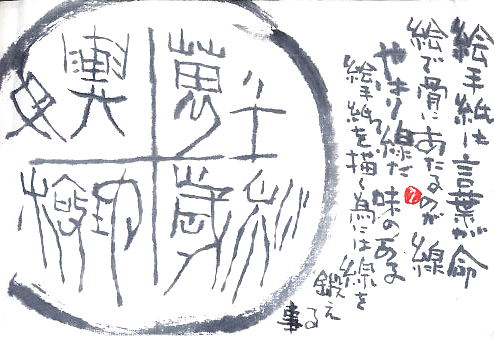 絵手紙は言葉が命
絵で骨にあたるのが線
やはり線だ味のある
絵手紙を描く為には線を
鍛え
る
事
千秋
萬歳
與地
毋極